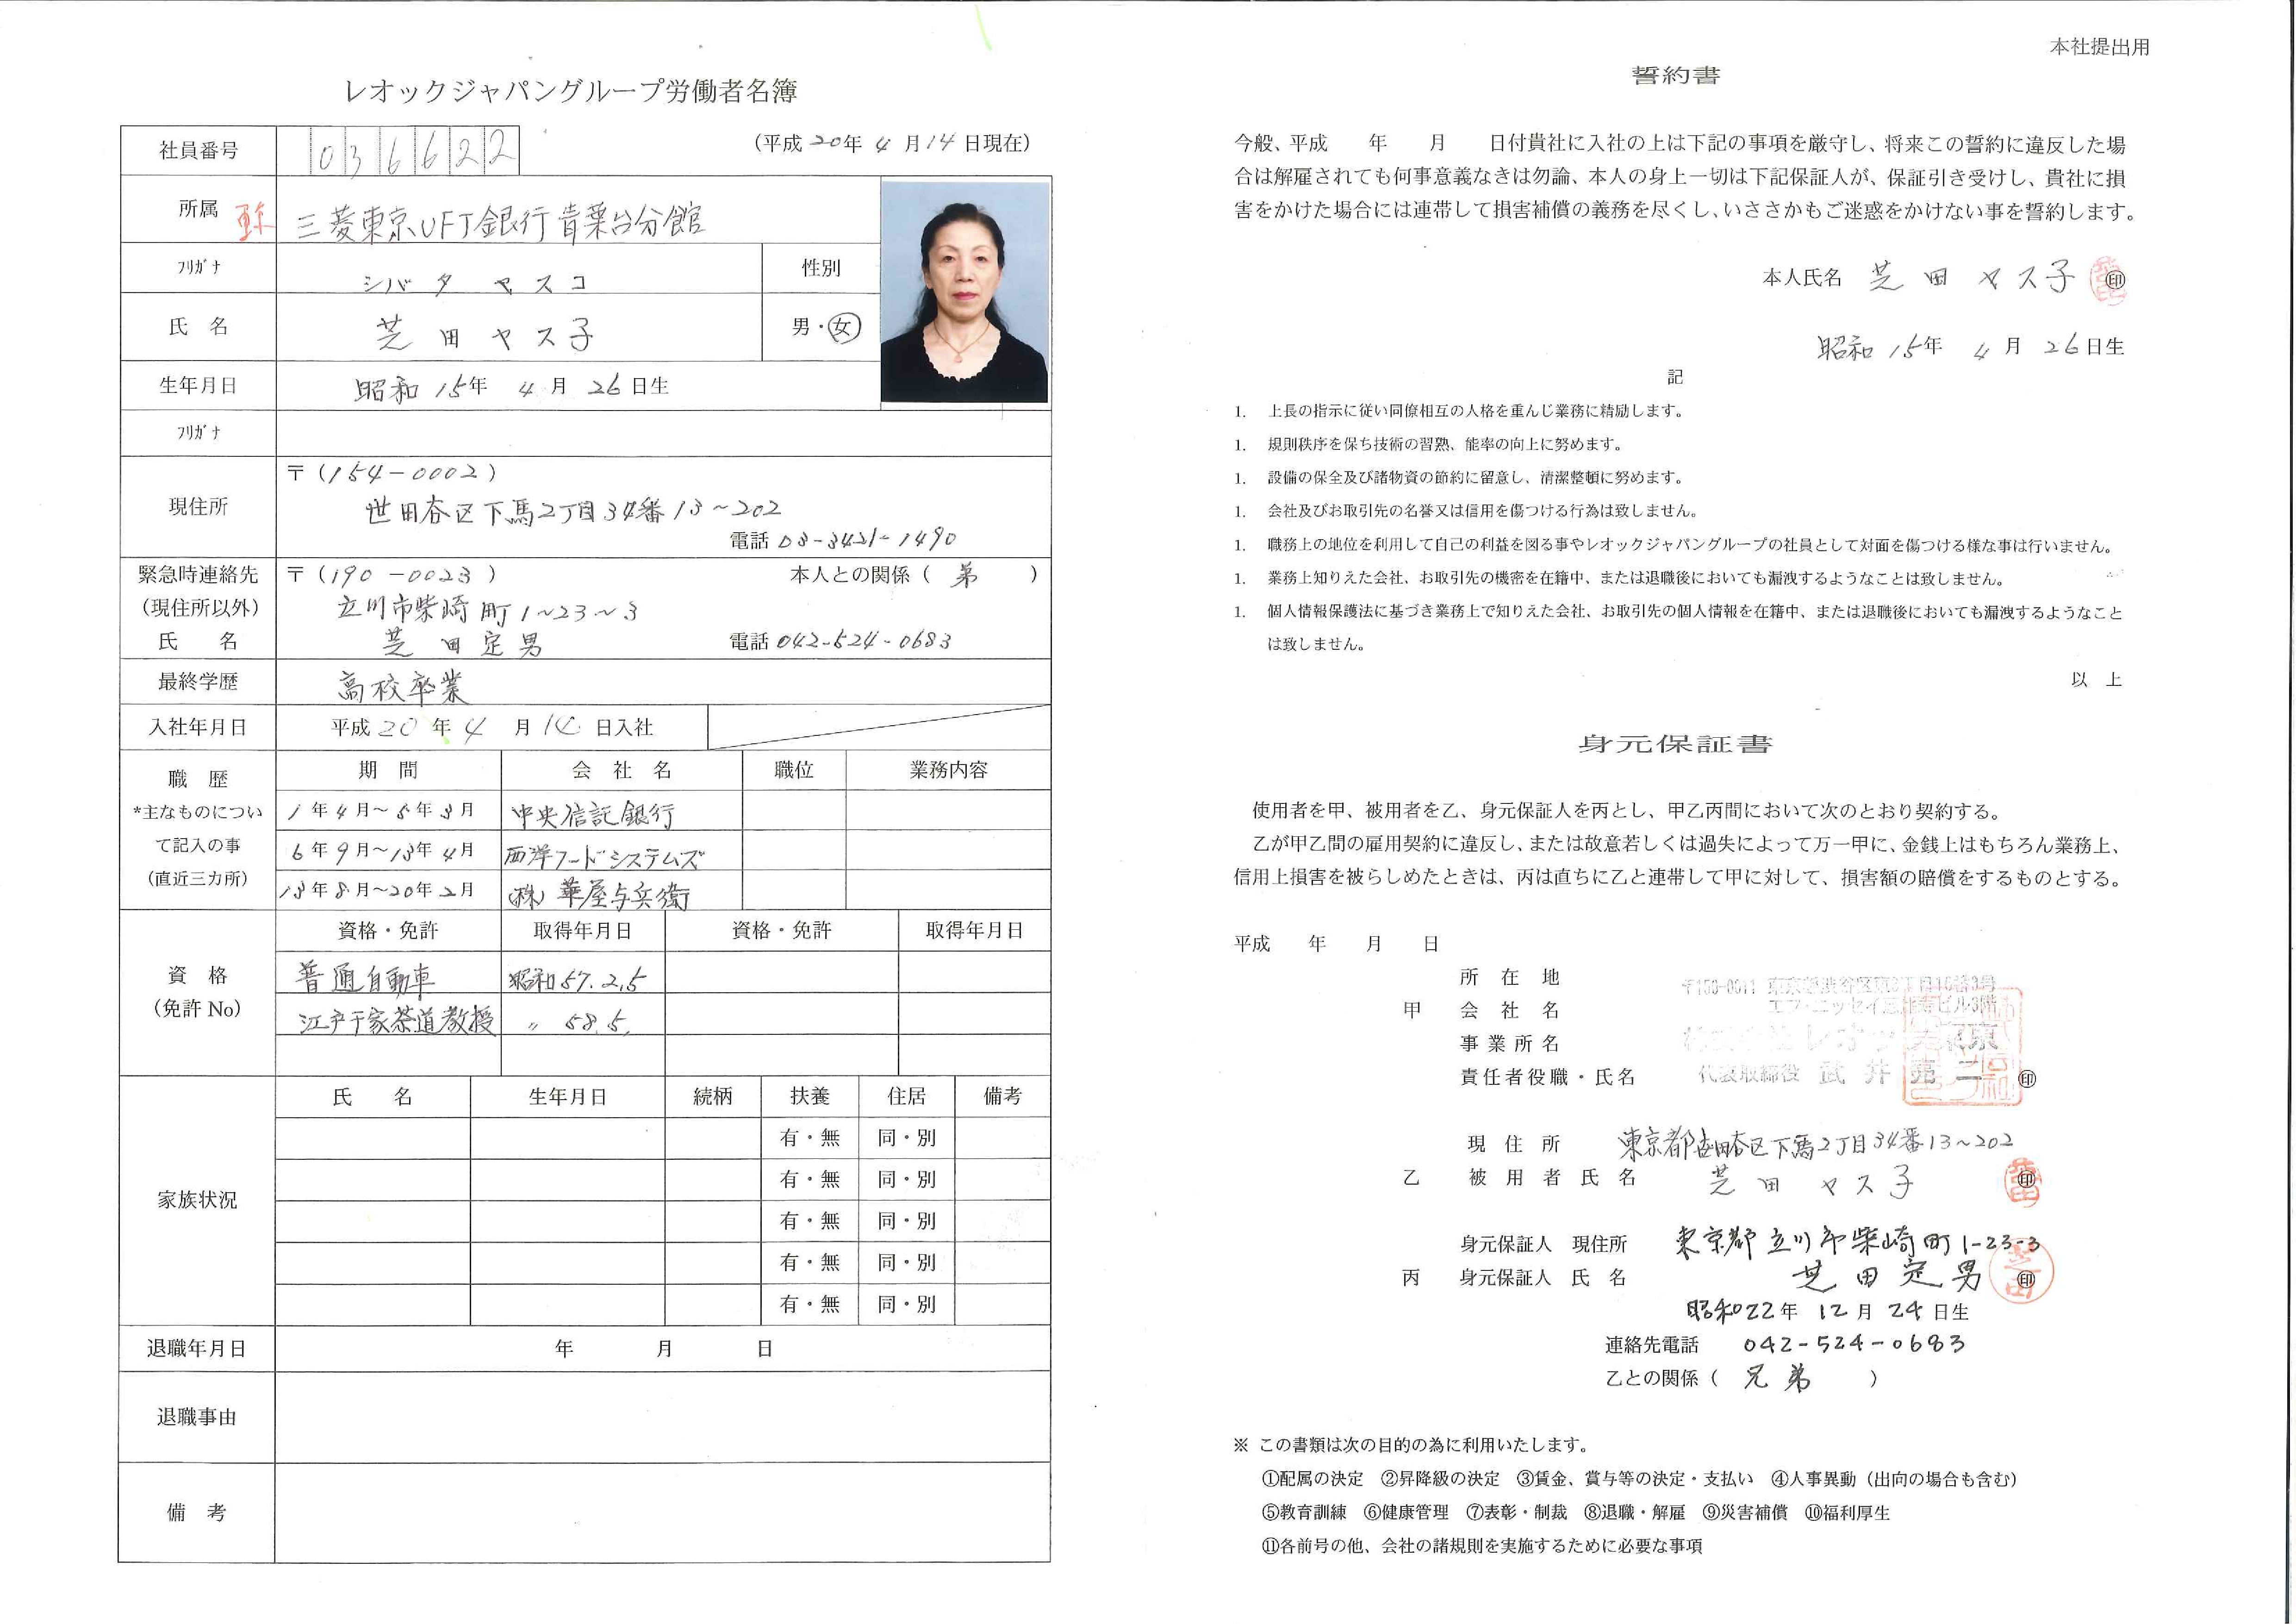 本社提出用
レオックジャパングループ労働者名簿
社員番号 036622 (平成20年4月14日現在)
所属 三菱東京UFJ銀行青葉台分館
フリガナ シバタ ヤスコ 性別
氏 名 芝田ヤス子 男・女
生年月日 昭和15年 4月 26日生
フリガナ
現住所 〒(154-0002)
世田谷区下馬2丁目34番13~202
電話 03-3421-1490
緊急時連絡先 〒(190-0023) 本人との関係( 弟 )
(現住所以外) 立川市柴崎町1~23~3
氏 名 芝田定男 電話 042-524-0683
最終学歴 高校卒業
入社年月日 平成20年4月14日入社
職 歴 期 間 会 社 名 職位 業務内容
*主なものについ 1年4月~5年3月 中央信託銀行
て記入の事 6年9月~13年4月 西洋フードシステムズ
(直近三カ所) 13年8月~20年2月 (株)華屋与兵衛
資格・免許 取得年月日 資格・免許 取得年月日
資 格 普通自動車 昭和57.2.5
(免許No) 江戸千家茶道教授 〃 58.5.
氏 名 生年月日 続柄 扶養 住居 備考
有・無 同・別
有・無 同・別
家族状況 有・無 同・別
有・無 同・別
有・無 同・別
退職年月日 年 月 日
退職事由
備 考
誓約書
今般、平成 年 月 日付貴社に入社の上は下記の事項を厳守し、将来この誓約に違反した場
合は解雇されても何事意義なきは勿論、本人の身上一切は下記保証人が、保証引き受けし、貴社に損
害をかけた場合には連帯して損害補償の義務を尽くし、いささかもご迷惑をかけない事を誓約します。
本人氏名 芝田ヤス子 印
昭和15年 4月 26日生
記
1. 上長の指示に従い同僚相互の人格を重んじ業務に精励します。
1. 規則秩序を保ち技術の習熟、能率の向上に努めます。
1. 設備の保全及び諸物資の節約に留意し、清潔整頓に努めます。
1. 会社及びお取引先の名誉又は信用を傷つける行為は致しません。
1. 職務上の地位を利用して自己の利益を図る事やレオックジャパングループの社員として対面を傷つける様な事は行いません。
1. 業務上知りえた会社、お取引先の機密を在籍中、または退職後においても漏洩するようなことは致しません。
1. 個人情報保護法に基づき業務上で知りえた会社、お取引先の個人情報を在籍中、または退職後においても漏洩するようなこと
は致しません。
以 上
身元保証書
使用者を甲、被用者を乙、身元保証人を丙とし、甲乙丙間において次のとおり契約する。
乙が甲乙間の雇用契約に違反し、または故意若しくは過失によって万一甲に、金銭上はもちろん業務上、
信用上損害を被らしめたときは、丙は直ちに乙と連帯して甲に対して、損害額の賠償をするものとする。
平成 年 月 日
所 在 地 東京都渋谷区東3丁目16番3号
甲 会 社 名 エフ・ニッセイ恵比寿ビル3階
事 業 所 名
責任者役職・氏名 代表取締役 武井 印
現 住 所 東京都世田谷区下馬2丁目34番13~202
乙 被 用 者 氏 名 芝田ヤス子 印
身元保証人 現住所 東京都立川市柴崎町1-23-3
丙 身元保証人 氏 名 芝田定男 印
昭和22年 12月 24日生
連絡先電話 042-524-0683
乙との関係( 兄弟 )
※ この書類は次の目的の為に利用いたします。
①配属の決定 ②昇降級の決定 ③賃金、賞与等の決定・支払い ④人事異動(出向の場合も含む)
⑤教育訓練 ⑥健康管理 ⑦表彰・制裁 ⑧退職・解雇 ⑨災害補償 ⑩福利厚生
⑪各前号の他、会社の諸規則を実施するために必要な事項